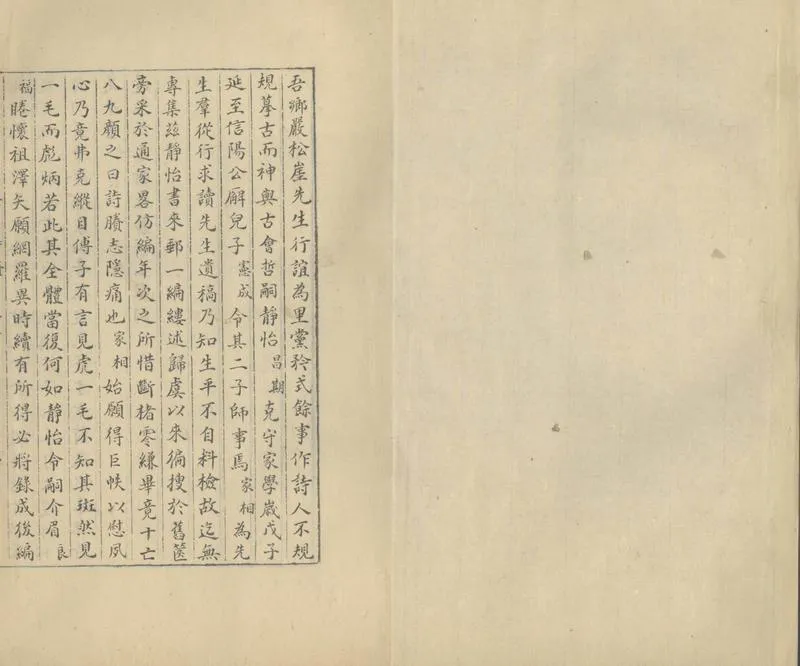 吾鄉嚴松崖先生行誼為里黨矜式餘事作詩人不規
規摹古而神與古會哲嗣靜怡昌期克守家學嵗戊子
延至信陽公廨兒子憲成令其二子師事焉家相為先
生羣從行求讀先生遺稿乃知生平不自料檢故迄無
專集茲靜怡書來郵一編縷述歸虞以来徧搜於舊篋
旁采於通家畧仿編年次之所惜斷楮零縑畢竟十亡
八九顔之曰詩賸志隱痛也家相始願得巨帙以慰夙
心乃竟弗克縱目傅子有言見虎一毛不知其斑然見
一毛而彪炳若此其全體當復何如靜怡令嗣介眉良
福睠懷祖澤矢願網羅異時續有所得必將錄成後編